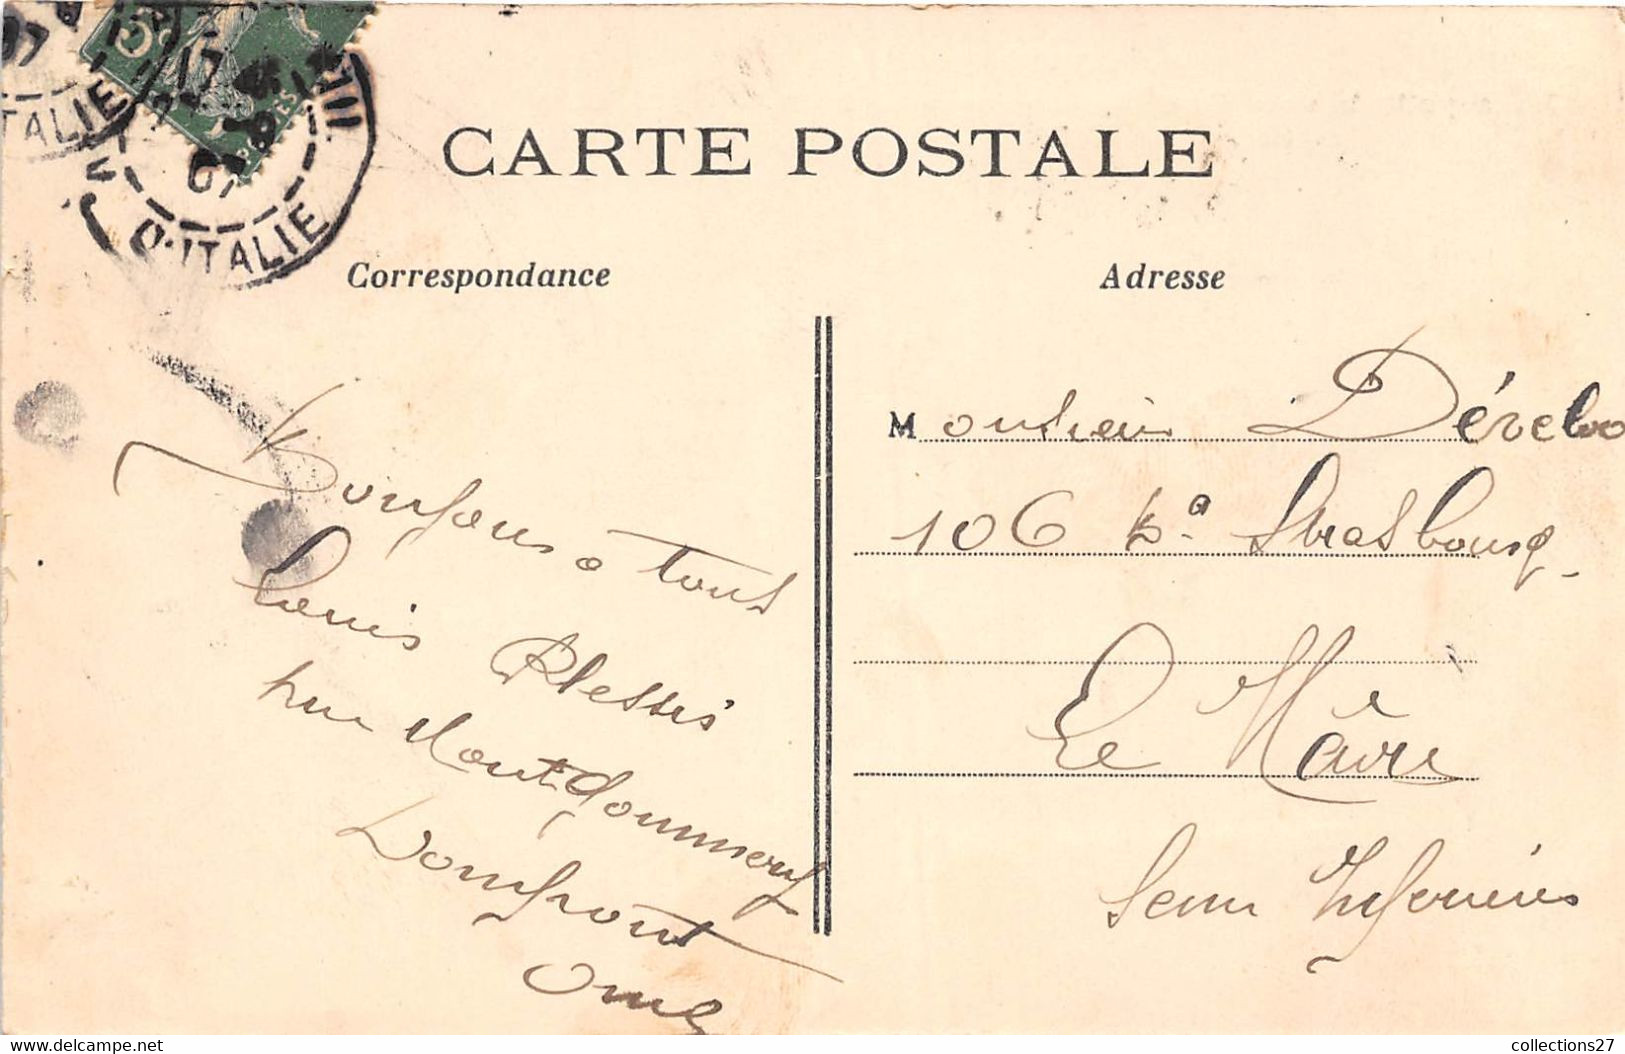 CARTE POSTALE
Correspondance
Adresse
Bonjour à tous
Louis Plessis
rue Montgommery
Domfront
Orne
Monsieur
106 Bd Strasbourg
Le Hâvre
Seine Inférieure
D'ITALIE
07
D'ITALIE
5c
POSTES
www.delcampe.net
collections27